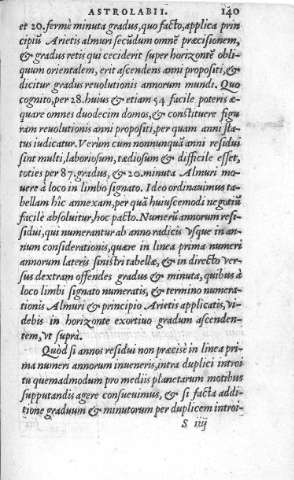 ASTROLABII. 140
et 20. fermè minuta gradus, quo facto, applica prin
cipiũ Arietis almuri secũdum omnẽ præcisionem,
& gradus retis qui ceciderit super horizontẽ obli-
quum orientalem, erit ascendens anni propositi, &
dicitur gradus reuolutionis annorum mundi. Quo
cognito, per 28. huius & etiam 54 facile poteris æ-
quare omnes duodecim domos, & constituere figu
ram reuolutionis anni propositi, per quam anni sta-
tus iudicatur. Verùm cum nonnunquã anni residui
sint multi, laboriosum, tædiosum & difficile esset,
toties per 87. gradus, & 20. minuta Almuri mo-
uere à loco in limbo signato. Ideo ordinauimus ta-
bellam hîc annexam, per quã huiuscemodi negotiũ
facilè absoluitur, hoc pacto. Numerũ annorum resi-
sidui, qui numerantur ab anno radicis vsque in an-
num considerationis, quære in linea prima numeri
annorum lateris sinistri tabellæ, & in directo ver-
sus dextram offendes gradus & minuta, quibus à
loco limbi signato numeratis, & termino numera-
tionis Almuri & principio Arietis applicatis, vi-
debis in horizonte exortiuo gradum ascenden-
tem, vt supra.
Quòd si annos residui non præcisè in linea pri-
ma numeri annorum inueneris, intra duplici introi
tu quemadmodum pro mediis planetarum motibus
supputandis agere consueuimus, & si facta addi-
tione graduum & minutorum per duplicem introi-
S iiij